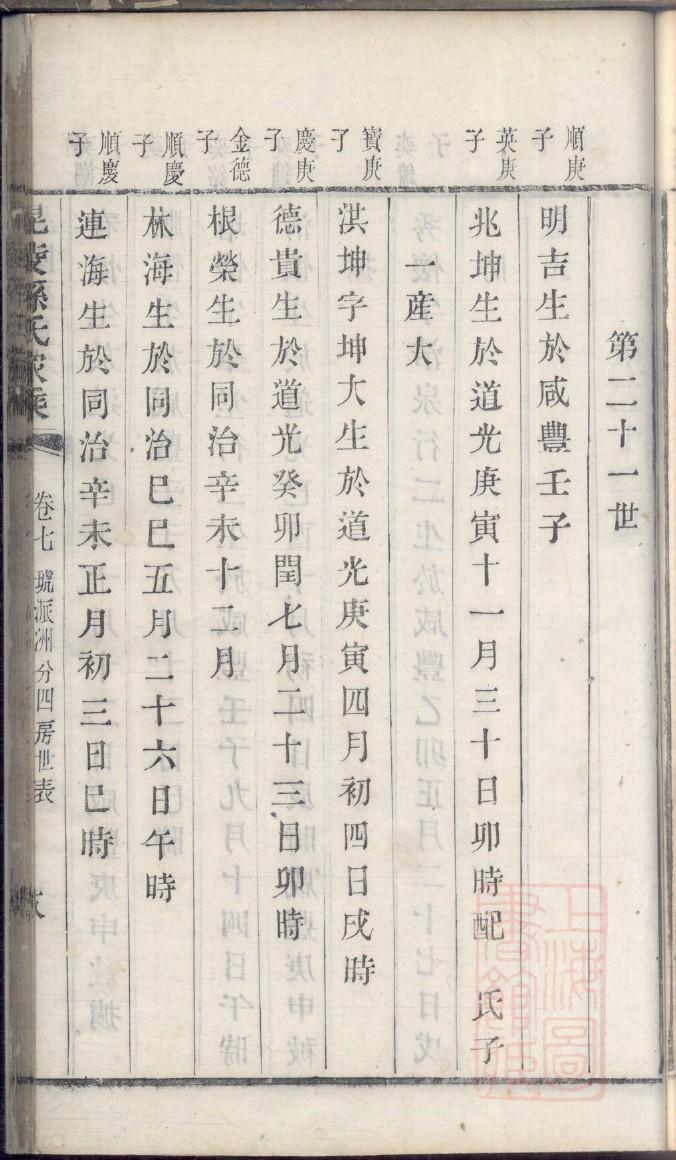 第二十一世
順庚子
明吉生於咸豐壬子
英庚子
兆坤生於道光庚寅十一月三十日卯時配　氏子
一產大
寶庚子
淇坤字坤大生於道光庚寅四月初四日戌時
慶庚子
德貴生於道光癸卯閏七月二十三日卯時
金德子
根榮生於同治辛未十二月
順慶子
林海生於同治巳巳五月二十六日午時
順慶子
連海生於同治辛未正月初三日巳時
毘陵孫氏家乘
卷七
琥派洲分四房世表
上海圖書館藏